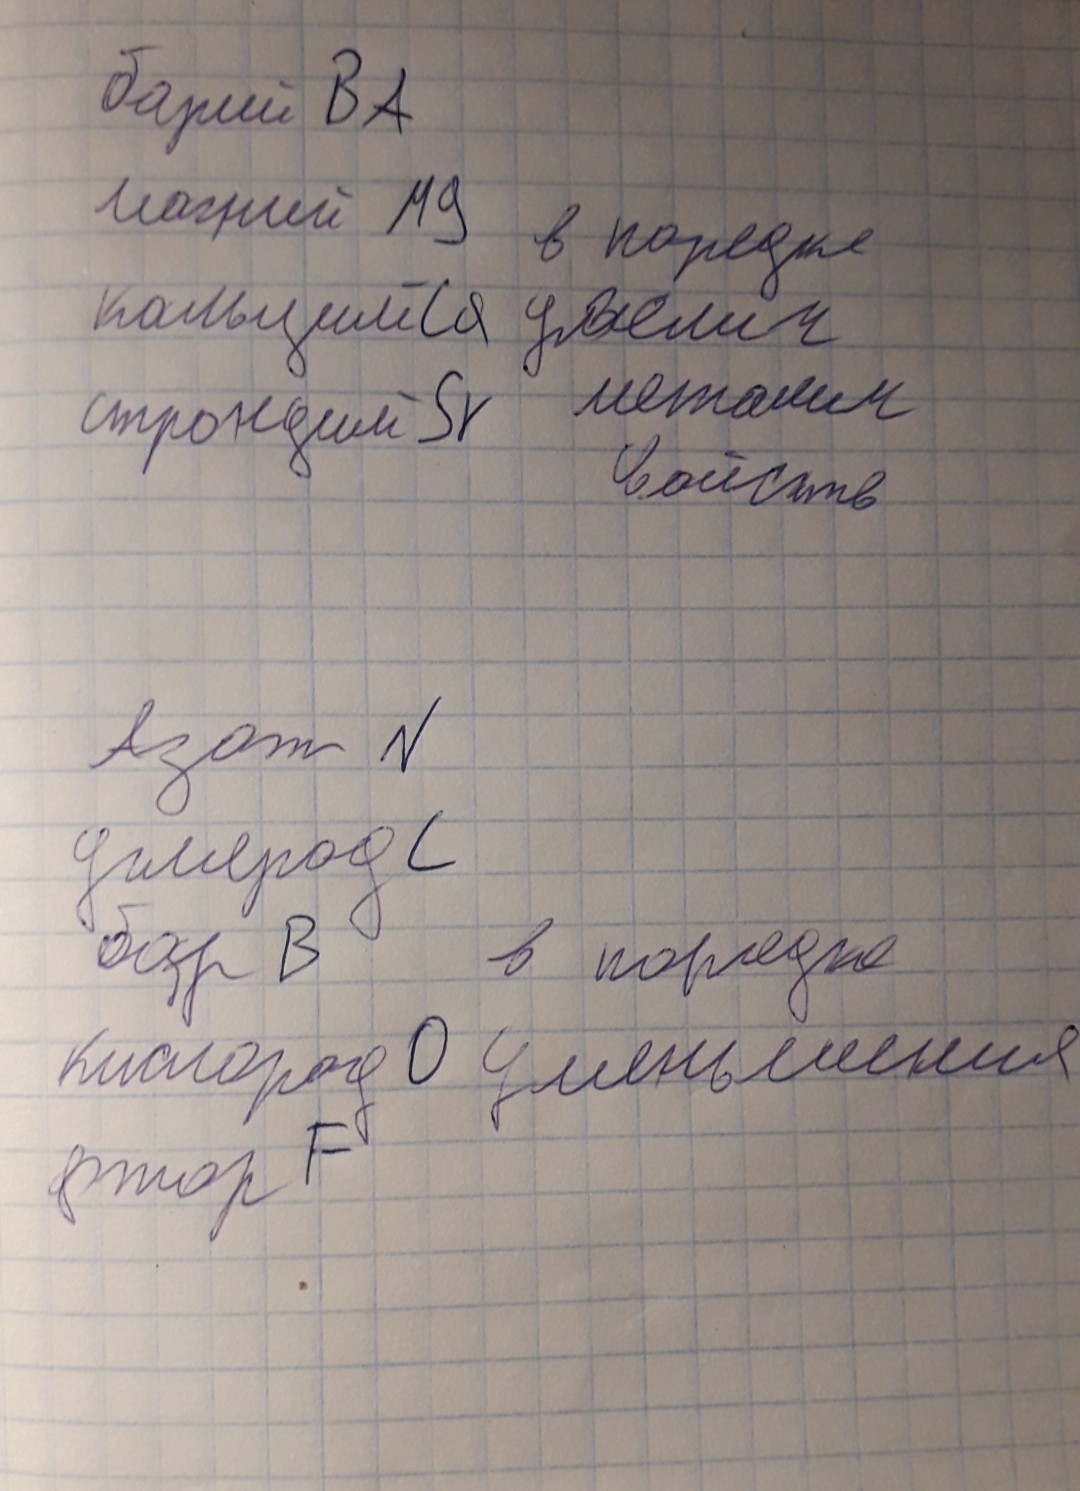 барий BA
магний Mg
в порядке
кальций Ca увелич
стронций Sr металлич
войств
Азот N
углерод C
бор B в порядке
кислород O уменьшения
фтор F